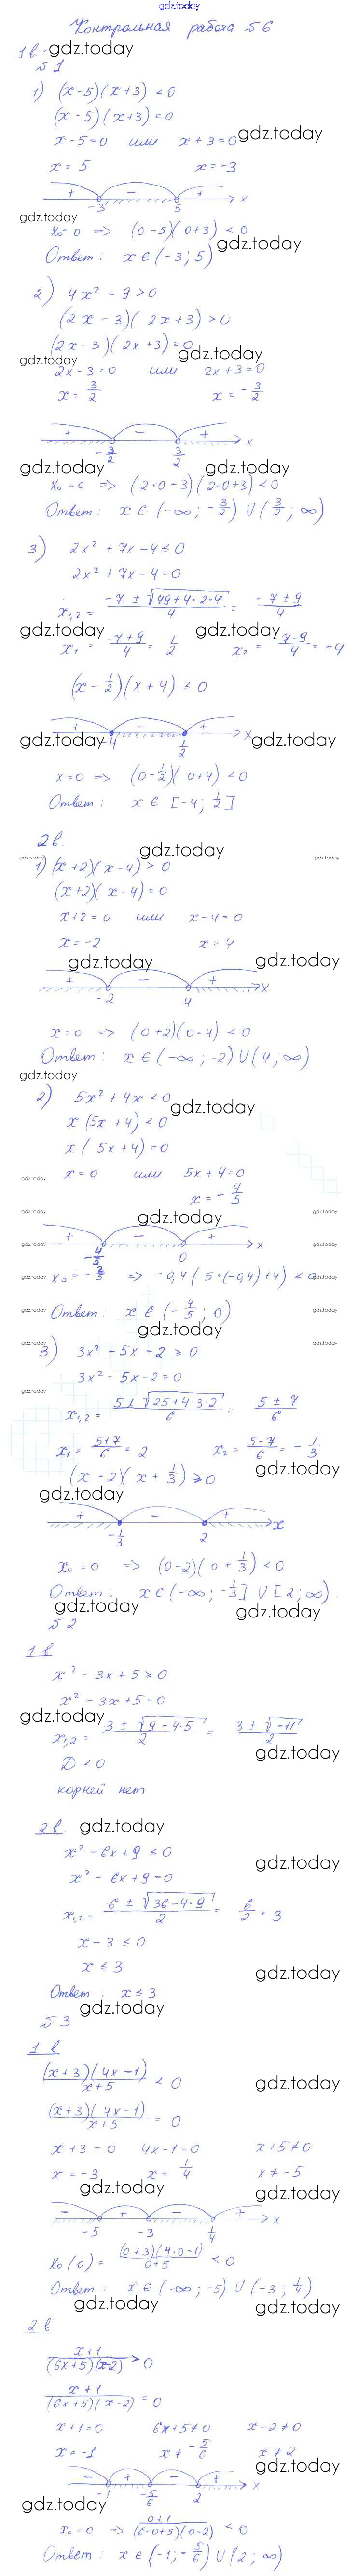 gdz.today
Контрольная работа №6
1в. gdz.today
№1
1) (x-5)(x+3) < 0
(x-5)(x+3) = 0
x-5=0 или x+3=0 gdz.today
x = 5 x = -3
+ - + -3 5 x
gdz.today
x₀=0 => (0-5)(0+3) < 0
gdz.today
Ответ: x ∈ (-3; 5)
2) 4x² - 9 > 0
(2x-3)(2x+3) > 0
(2x-3)(2x+3) = 0
gdz.today gdz.today
2x-3=0 или 2x+3=0
x = 3/2 x = -3/2
+ - + -3/2 3/2 x
gdz.today gdz.today
x₀=0 => (2·0-3)(2·0+3) < 0
Ответ: x ∈ (-∞; -3/2) ∪ (3/2; ∞)
3) 2x² + 7x - 4 ≤ 0
2x² + 7x - 4 = 0
x₁,₂ = (-7 ± √(49+4·2·4))/4 = (-7 ± 9)/4
gdz.today gdz.today
x₁ = (-7+9)/4 = 1/2 x₂ = (-7-9)/4 = -4
(x - 1/2)(x+4) ≤ 0
+ - + -4 1/2 x
gdz.today gdz.today
x=0 => (0-1/2)(0+4) < 0
Ответ: x ∈ [-4; 1/2]
2в.
gdz.today
gdz.today gdz.today
1) (x+2)(x-4) > 0
(x+2)(x-4) = 0
x+2=0 или x-4=0
x=-2 x=4
gdz.today gdz.today
+ - + -2 4 x
x=0 => (0+2)(0-4) < 0
Ответ: x ∈ (-∞; -2) ∪ (4; ∞)
gdz.today
2) 5x² + 4x < 0
gdz.today
x(5x+4) < 0
x(5x+4) = 0
x=0 или 5x+4=0
gdz.today gdz.today
x = -4/5
gdz.today gdz.today gdz.today
+ - + -4/5 0 x
gdz.today gdz.today
x₀ = -2/5 => -0,4(5·(-0,4)+4) < 0
gdz.today gdz.today
Ответ: x ∈ (-4/5; 0)
gdz.today
gdz.today gdz.today
3) 3x² - 5x - 2 ≥ 0
3x² - 5x - 2 = 0
gdz.today
x₁,₂ = (5 ± √(25+4·3·2))/6 = (5 ± 7)/6
x₁ = (5+7)/6 = 2 x₂ = (5-7)/6 = -1/3
gdz.today
(x-2)(x+1/3) ≥ 0
gdz.today
+ - + -1/3 2 x
x₀=0 => (0-2)(0+1/3) < 0
Ответ: x ∈ (-∞; -1/3] ∪ [2; ∞).
gdz.today gdz.today
№2
1в
x² - 3x + 5 ≥ 0
x² - 3x + 5 = 0
gdz.today
x₁,₂ = (3 ± √(9-4·5))/2 = (3 ± √-11)/2
gdz.today
D < 0
корней нет
2в. gdz.today
x² - 6x + 9 ≤ 0
gdz.today
x² - 6x + 9 = 0
x₁,₂ = (6 ± √(36-4·9))/2 = 6/2 = 3
x-3 ≤ 0
x ≤ 3
gdz.today
Ответ: x ≤ 3
gdz.today
№3
1в
(x+3)(4x-1)/(x+5) < 0
gdz.today
(x+3)(4x-1)/(x+5) = 0
x+3=0 4x-1=0 x+5≠0
x=-3 x=1/4 x≠-5
gdz.today gdz.today
- + - + -5 -3 1/4 x
x₀(0) = (0+3)(4·0-1)/(0+5) < 0
gdz.today
Ответ: x ∈ (-∞; -5) ∪ (-3; 1/4)
gdz.today gdz.today
2в
(x+1)/((6x+5)(x-2)) > 0
gdz.today
(x+1)/((6x+5)(x-2)) = 0
x+1=0 6x+5≠0 x-2≠0
x=-1 x≠-5/6 x≠2
gdz.today
- + - + -1 -5/6 2 x
gdz.today
x₀=0 => (0+1)/((6·0+5)(0-2)) < 0
gdz.today
Ответ: x ∈ (-1; -5/6) ∪ (2; ∞)